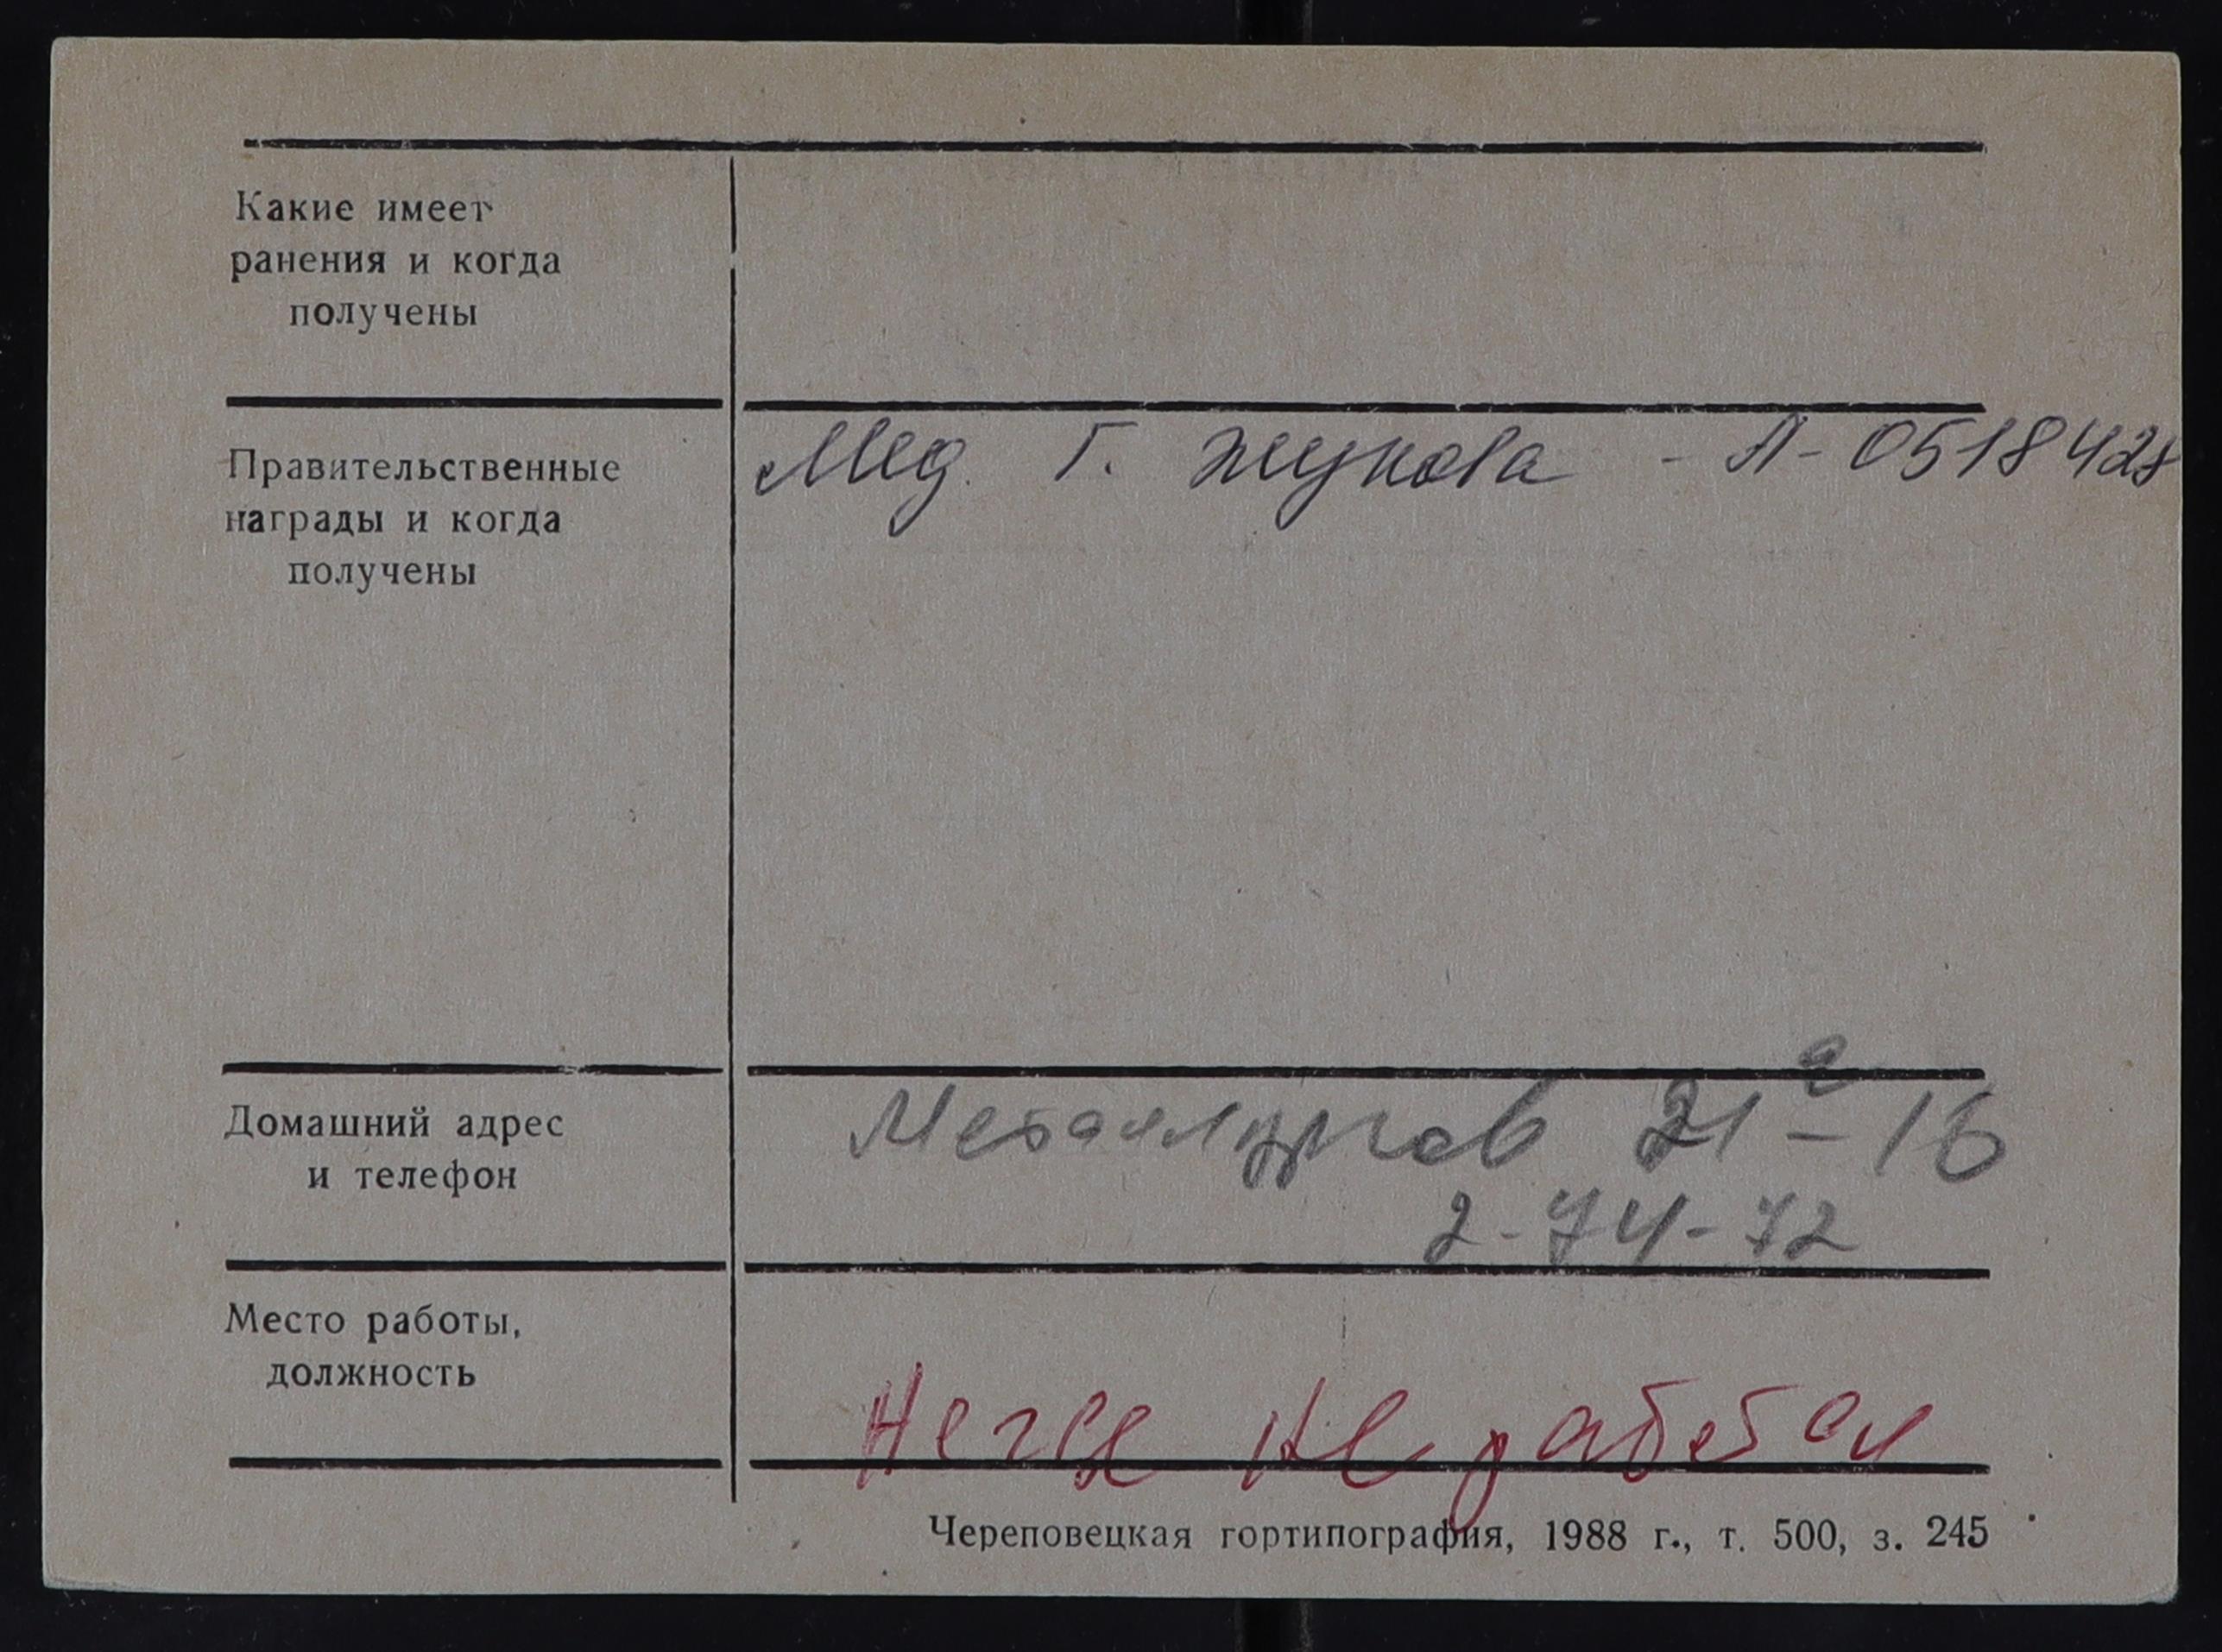 Какие имеет
ранения и когда
получены
Правительственные
награды и когда
получены
Мед. Г. Жукова - А-0518428
Домашний адрес
и телефон
Металлургов 21а-16
2-74-72
Место работы,
должность
Нигде не работал
Череповецкая гортипография, 1988 г., т. 500, з. 245